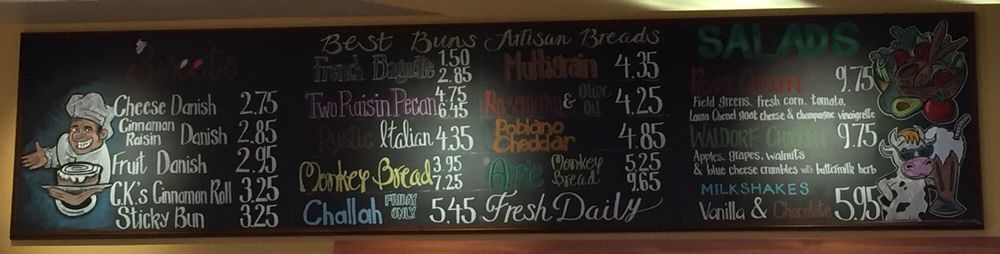 Sweets
Cheese Danish 2.75
Cinnamon Raisin Danish 2.85
Fruit Danish 2.95
C.K.'s Cinnamon Roll 3.25
Sticky Bun 3.25
Best Buns
French Baguette 1.50 2.85
Two Raisin Pecan 4.75 6.45
Rustic Italian 4.35
Monkey Bread 3.95 7.25
Challah FRIDAY ONLY 5.45
Artisan Breads
Multigrain 4.35
Rosemary & Olive Oil 4.25
Poblano Cheddar 4.85
Apple Monkey Bread 5.25 9.65
Fresh Daily
SALADS
Chicken 9.75
Field greens, fresh corn, tomato,
Laura Chenel goat cheese & champagne vinaigrette
WALDORF CHICKEN 9.75
Apples, grapes, walnuts
& blue cheese crumbles with buttermilk herb
MILKSHAKES
Vanilla & Chocolate 5.95